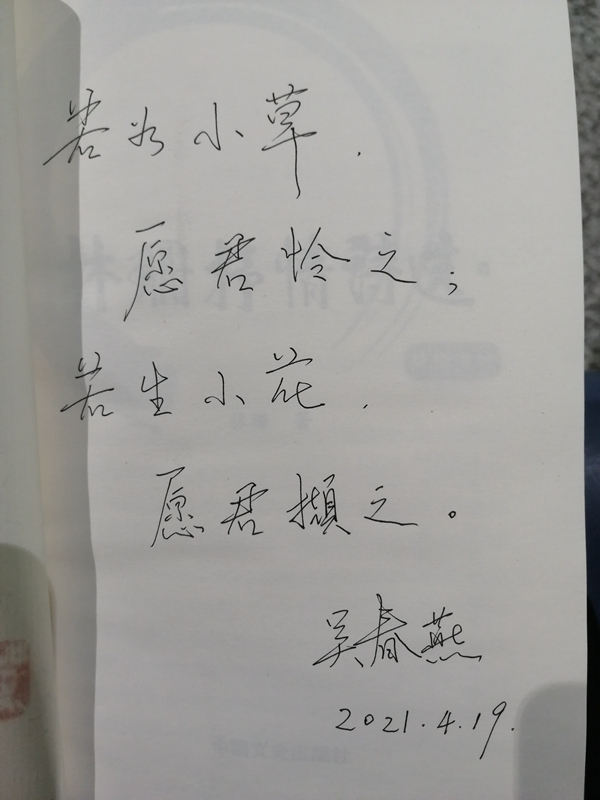 若为小草.
愿君怜之;
若生小花.
愿君擷之。
吴春燕
2021.4.19.